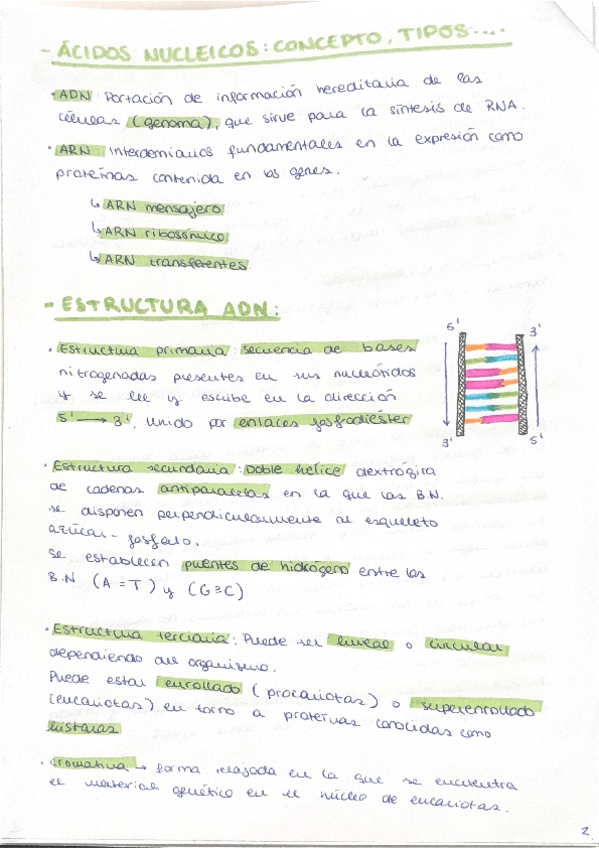 - ÁCIDOS NUCLEICOS: CONCEPTO, TIPOS....
· ADN: Portación de información hereditaria de las
células (genoma), que sirve para la síntesis de RNA.
· ARN: Interdemiarios fundamentales en la expresión como
proteínas contenida en los genes.
↳ ARN mensajero
↳ ARN ribosómico
↳ ARN transferentes.
- ESTRUCTURA ADN:
· Estructura primaria: secuencia de bases
nitrogenadas presentes en sus nucleótidos
y se lee y escribe en la dirección
5' → 3'. Unido por enlaces fosfodiéster
5' 3'
3' 5'
· Estructura secundaria: Doble hélice dextrógira
de cadenas antiparalelas en la que las B.N.
se disponen perpendicularmente al esqueleto
azúcar - fosfato.
Se establecen puentes de hidrógeno entre las
B.N (A=T) y (G≡C)
· Estructura terciaria: Puede ser lineal o circular
dependiendo del organismo.
Puede estar enrollado (procariotas) o superenrollado
(eucariotas) en torno a proteínas conocidas como
histonas
· Cromatina → forma relajada en la que se encuentra
el material genético en el núcleo de eucariotas.
2